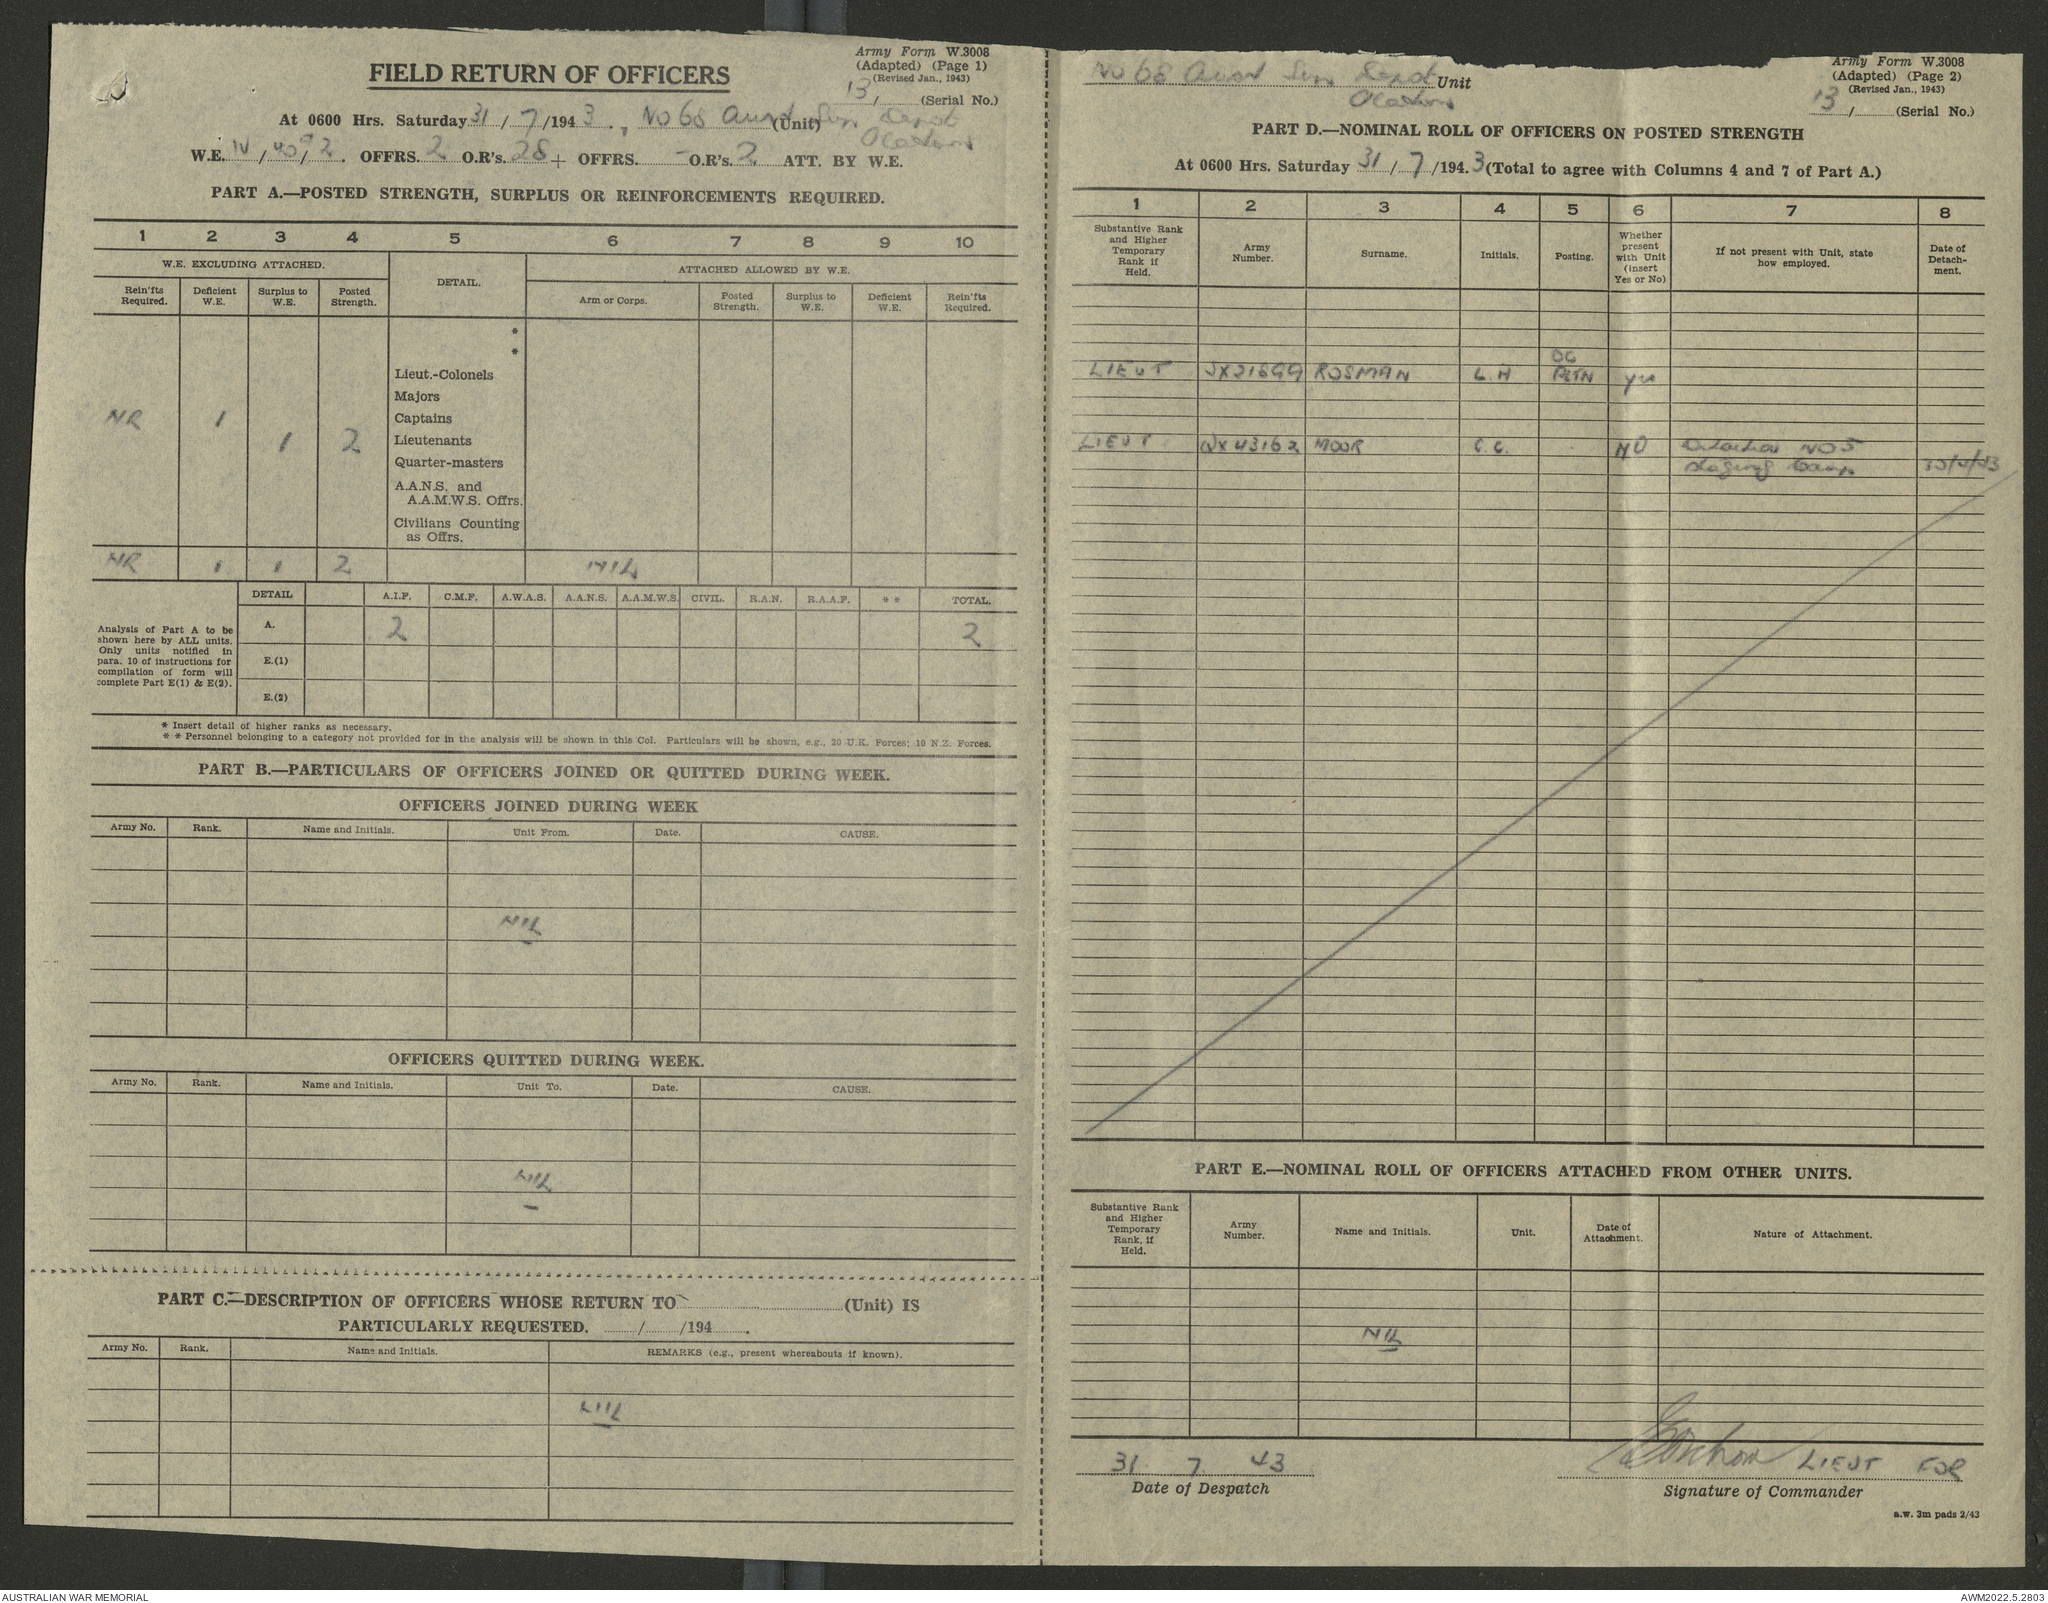 Army Form W.3008
(Adapted) (Page 1)
(Revised Jan., 1943)
FIELD RETURN OF OFFICERS
13/ (Serial No.)
At 0600 Hrs. Saturday 31/7/1943, No 68 (Unit) Depot
W.E. IV/40/92. OFFRS. 2 O.R's. 28 + OFFRS. - O.R's. 2 ATT. BY W.E.
PART A.—POSTED STRENGTH, SURPLUS OR REINFORCEMENTS REQUIRED.
1 2 3 4 5 6 7 8 9 10
W.E. EXCLUDING ATTACHED. DETAIL. ATTACHED ALLOWED BY W.E.
Rein'fts Required. Deficient W.E. Surplus to W.E. Posted Strength. Arm or Corps. Posted Strength. Surplus to W.E. Deficient W.E. Rein'fts Required.
*
*
Lieut.-Colonels
Majors
NR 1 Captains
1 2 Lieutenants
Quarter-masters
A.A.N.S. and
A.A.M.W.S. Offrs.
Civilians Counting
as Offrs.
NR 1 1 2 NIL
DETAIL A.I.F. C.M.F. A.W.A.S. A.A.N.S. A.A.M.W.S. CIVIL. R.A.N. R.A.A.F. * * TOTAL.
Analysis of Part A to be
shown here by ALL units.
Only units notified in
para. 10 of instructions for
compilation of form will
complete Part E(1) & E(2).
A. 2 2
E.(1)
E.(2)
* Insert detail of higher ranks as necessary.
* * Personnel belonging to a category not provided for in the analysis will be shown in this Col. Particulars will be shown, e.g., 20 U.K. Forces; 10 N.Z. Forces.
PART B.—PARTICULARS OF OFFICERS JOINED OR QUITTED DURING WEEK.
OFFICERS JOINED DURING WEEK
Army No. Rank. Name and Initials. Unit From. Date. CAUSE.
NIL
OFFICERS QUITTED DURING WEEK.
Army No. Rank. Name and Initials. Unit To. Date. CAUSE.
NIL
PART C.—DESCRIPTION OF OFFICERS WHOSE RETURN TO (Unit) IS
PARTICULARLY REQUESTED. / /194 .
Army No. Rank. Name and Initials. REMARKS (e.g., present whereabouts if known).
NIL
Army Form W.3008
(Adapted) (Page 2)
(Revised Jan., 1943)
No 68 Depot Unit
13/ (Serial No.)
PART D.—NOMINAL ROLL OF OFFICERS ON POSTED STRENGTH
At 0600 Hrs. Saturday 31/7/1943 (Total to agree with Columns 4 and 7 of Part A.)
1 2 3 4 5 6 7 8
Substantive Rank and Higher Temporary Rank if Held. Army Number. Surname. Initials. Posting. Whether present with Unit (insert Yes or No) If not present with Unit, state how employed. Date of Detach-ment.
OC
LIEUT ROSMAN L.H yes
LIEUT MOOR C.C. NO NO 5
Camp
PART E.—NOMINAL ROLL OF OFFICERS ATTACHED FROM OTHER UNITS.
Substantive Rank and Higher Temporary Rank, if Held. Army Number. Name and Initials. Unit. Date of Attachment. Nature of Attachment.
NIL
31 7 43 LIEUT FOR
Date of Despatch Signature of Commander
a.w. 3m pads 2/43
AUSTRALIAN WAR MEMORIAL AWM2022.5.2803